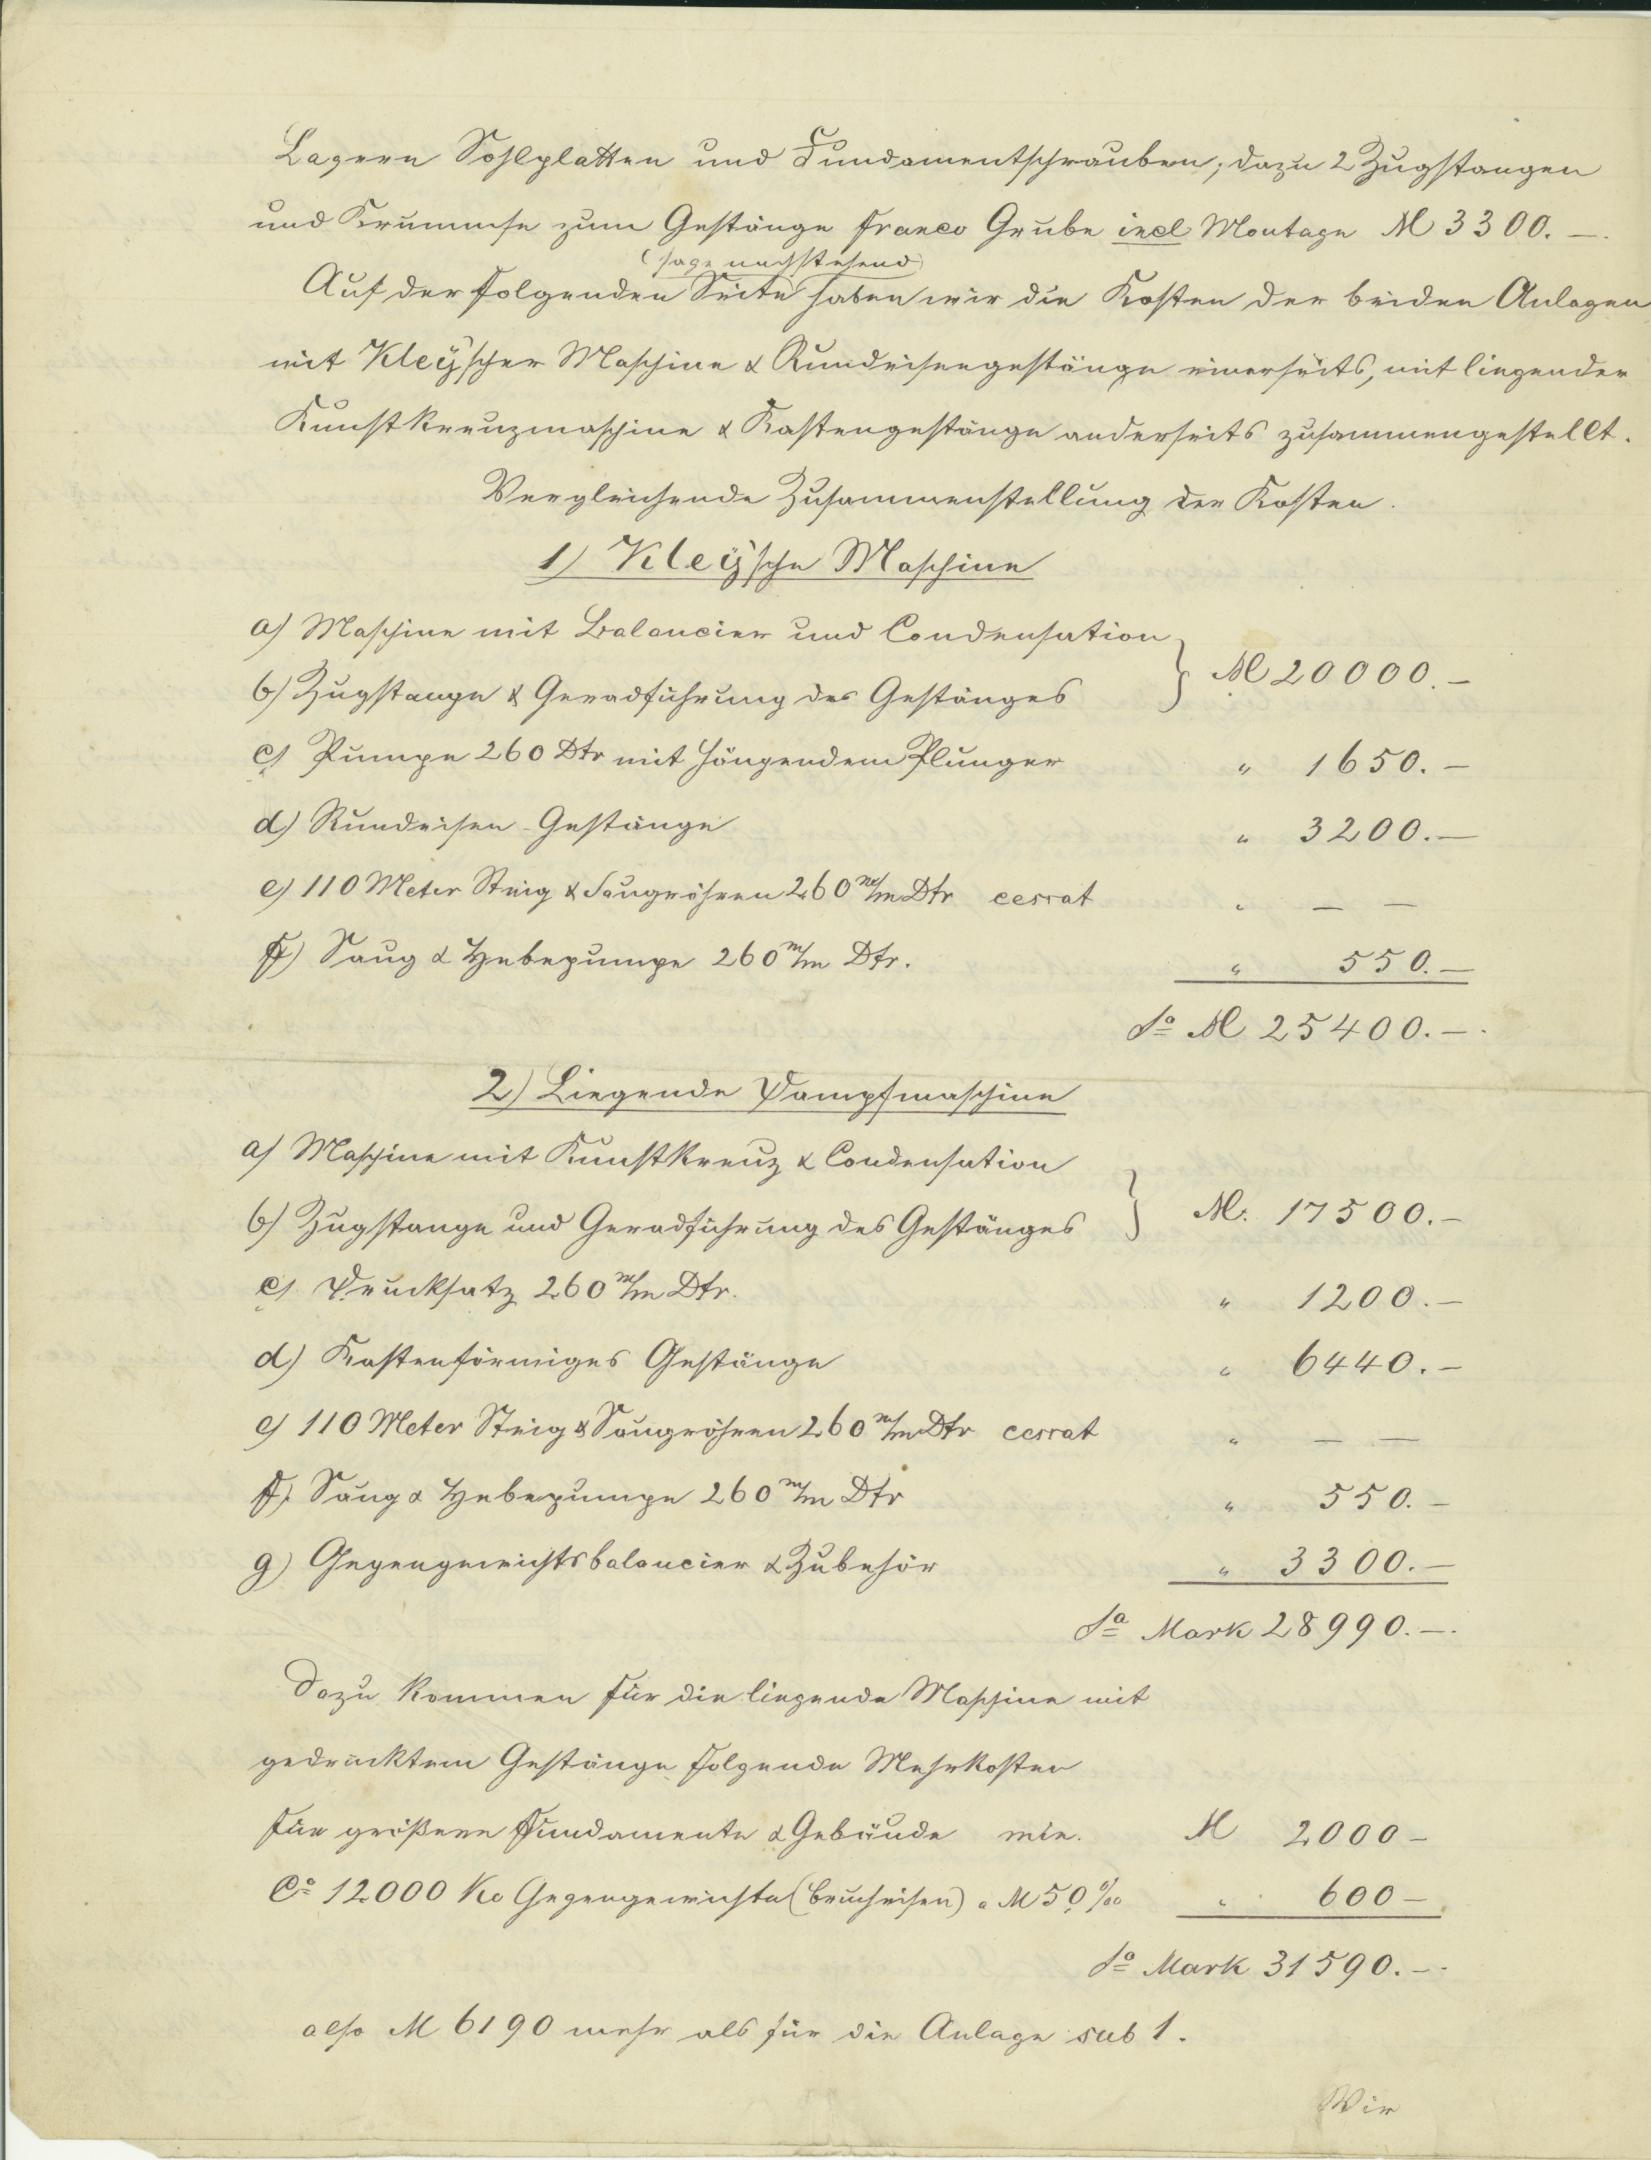 Lagern Sohlplatten und Fundamentschrauben, dazu 2 Zugstangen
und Krummse zum Gestänge franco Grube incl Montage M 3300.—.
(sage nachstehend)
Auf der folgenden Seite haben wir die Kosten der beiden Anlagen
mit Kley'scher Maschine & Rundeisengestänge einerseits, mit liegender
Kunstkreuzmaschine & Kastengestänge anderseits zusammengestellt.
Vergleichende Zusammenstellung der Kosten.
1) Kley'sche Maschine
a) Maschine mit Balancier und Condensation
b) Zugstange & Geradführung des Gestänges } M 20000.—
c) Pumpe 260 Dtr mit hängendem Plunger " 1650.—
d) Rundeisen-Gestänge " 3200.—
e) 110 Meter Steig & Saugröhren 260 m/m Dtr cessat " — —
f) Saug & Hebepumpe 260 m/m Dtr. " 550.—
Sa M 25400.—.
2) Liegende Dampfmaschine
a) Maschine mit Kunstkreuz & Condensation
b) Zugstange und Geradführung des Gestänges } M. 17500.—
c) Drucksatz 260 m/m Dtr. " 1200.—
d) Kastenförmiges Gestänge " 6440.—
e) 110 Meter Steig & Saugröhren 260 m/m Dtr cessat " — —
f) Saug & Hebepumpe 260 m/m Dtr " 550.—
g) Gegengewichtsbalancier & Zubehör " 3300.—
Sa Mark 28990.—.
Dazu kommen für die liegende Maschine mit
gedrücktem Gestänge folgende Mehrkosten
für größere Fundamente & Gebäude min. M 2000—
Ca 12000 Ko Gegengewichte (Brucheisen) a M 50 ‰ " 600—
Sa Mark 31590.—.
also M 6190 mehr als für die Anlage sub 1.
Wir